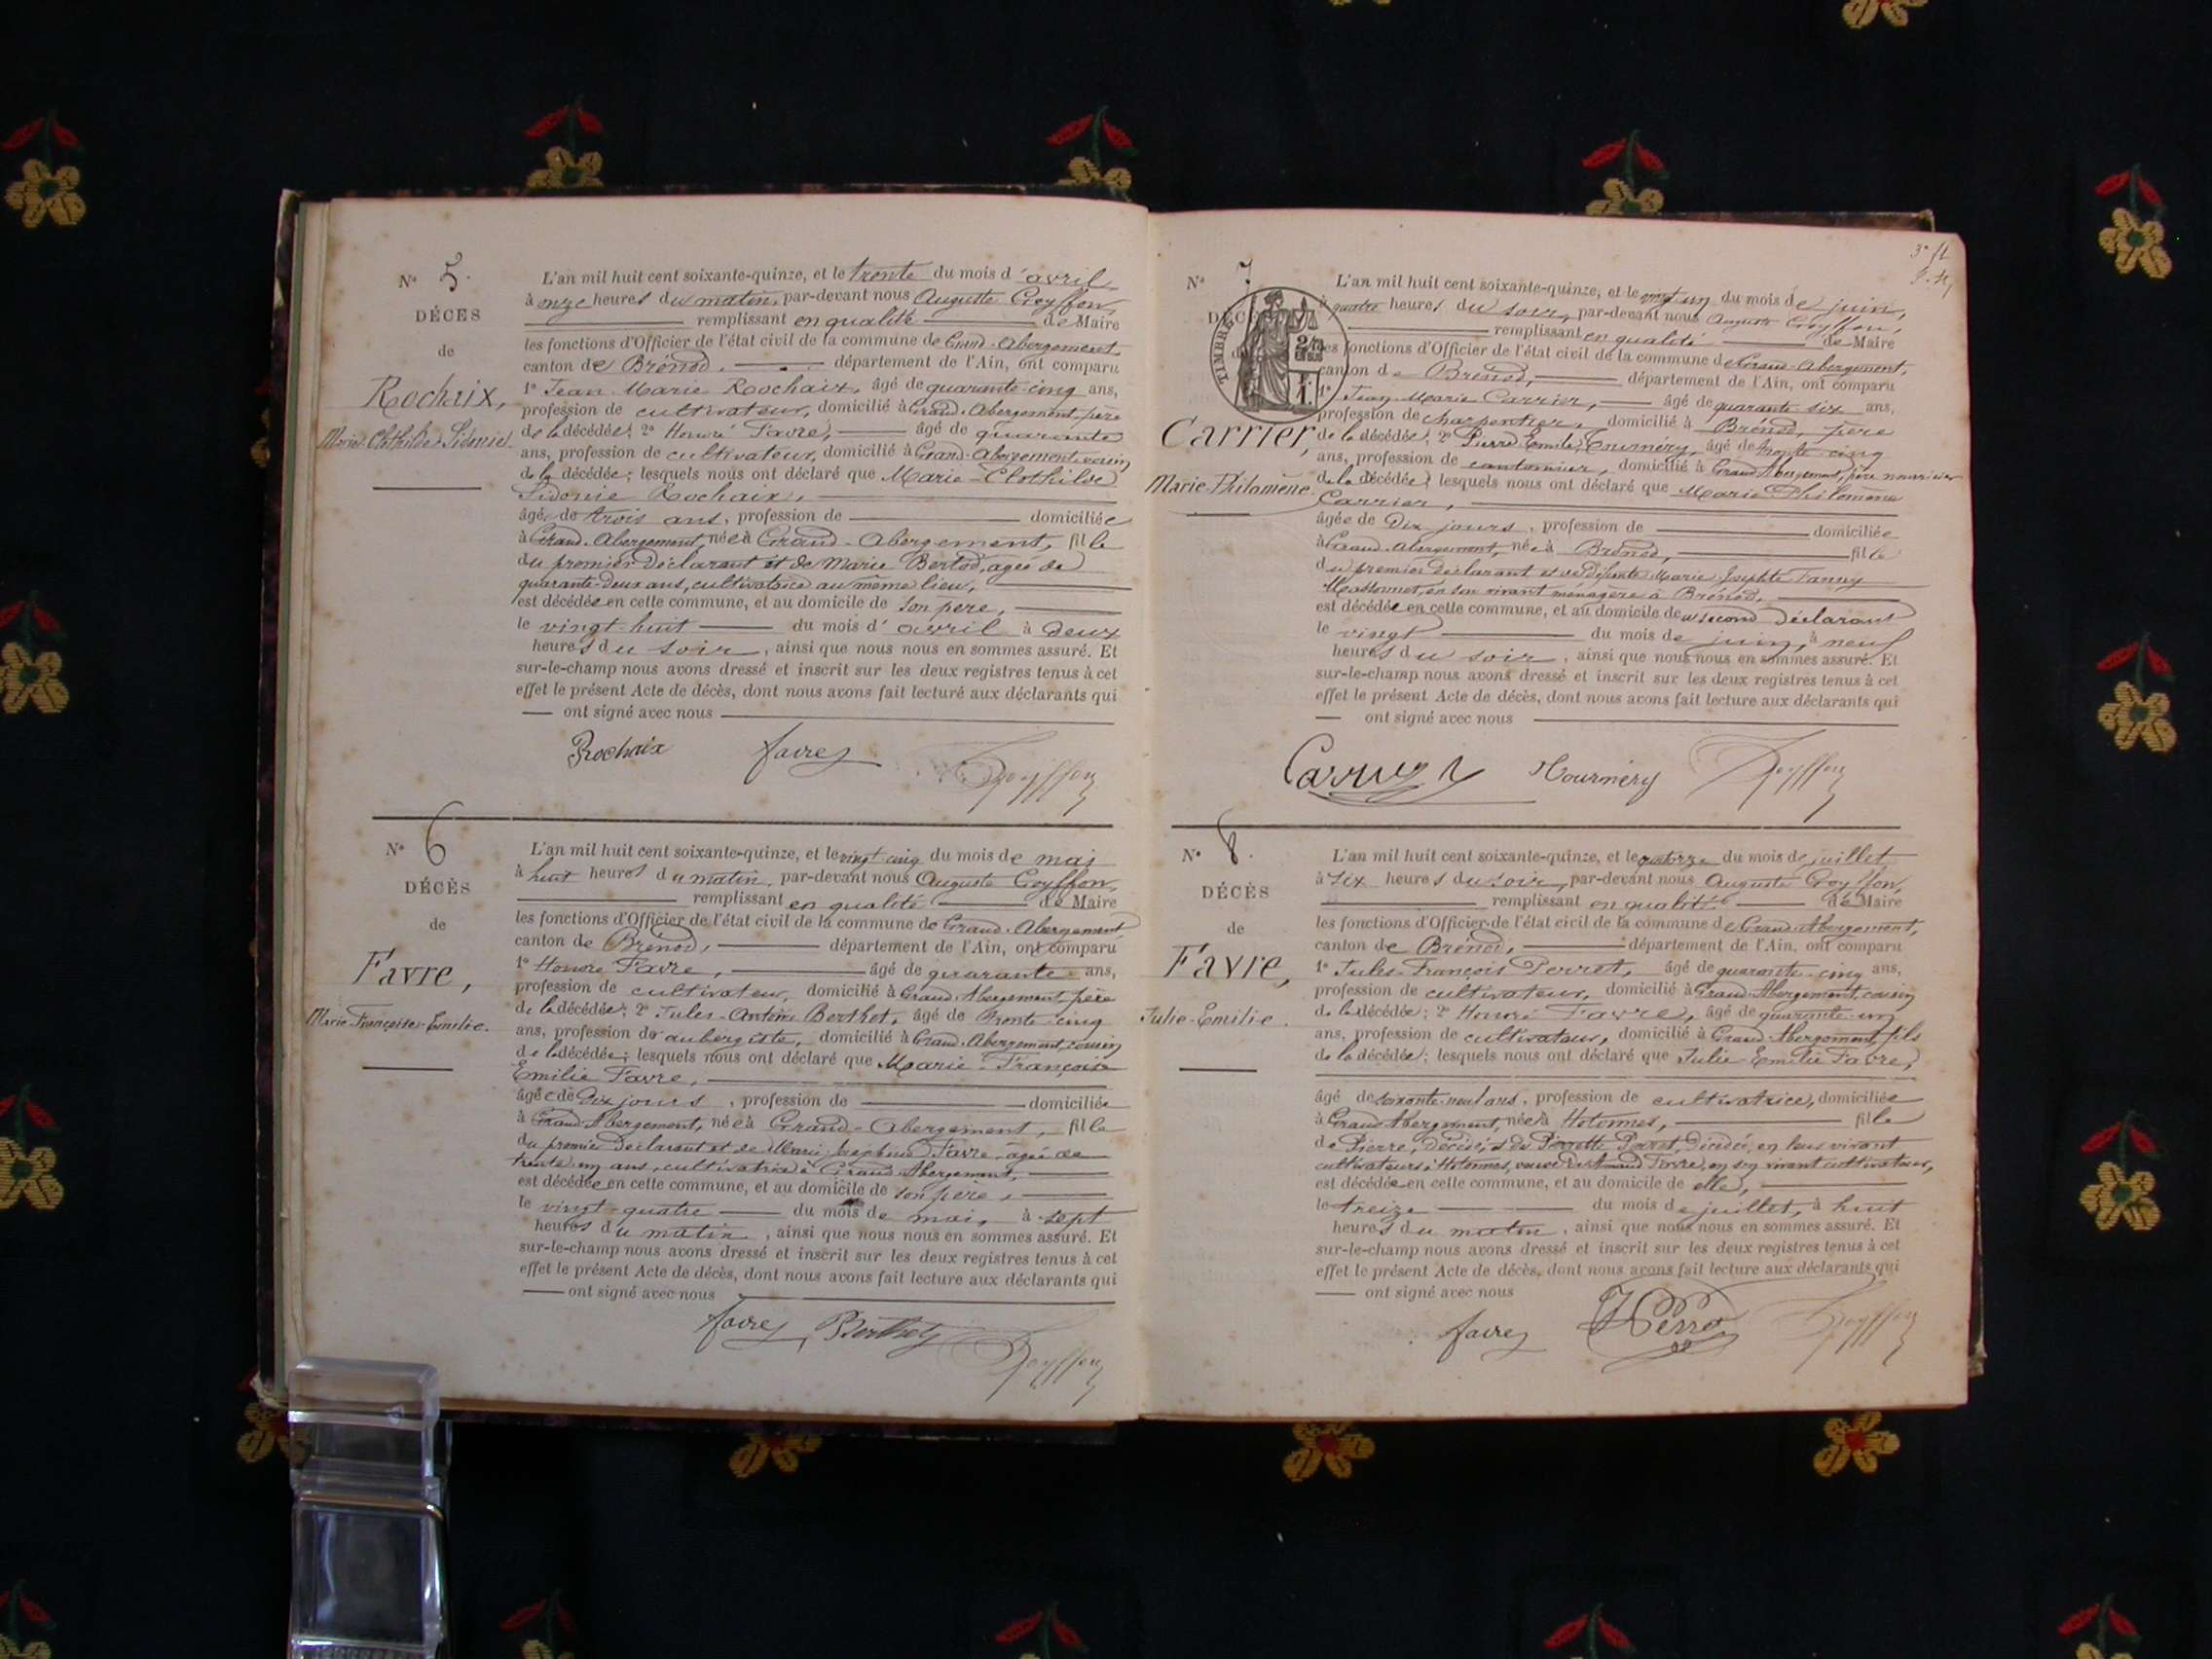 N° 5.
DÉCÈS
de
Rochaix,
Marie-Clothilde-Sidonie.
L'an mil huit cent soixante-quinze, et le trente du mois d'avril
à onze heures du matin, par-devant nous Auguste Goyffon,
remplissant en qualité de Maire
les fonctions d'Officier de l'état civil de la commune de Grand-Abergement,
canton de Brénod, département de l'Ain, ont comparu
1° Jean Marie Rochaix, âgé de quarante-cinq ans,
profession de cultivateur, domicilié à Grand-Abergement, père
de la décédée; 2° Honoré Favre, âgé de quarante
ans, profession de cultivateur, domicilié à Grand-Abergement, voisin
de la décédée; lesquels nous ont déclaré que Marie-Clothilde
Sidonie Rochaix,
âgée de trois ans, profession de domiciliée
à Grand-Abergement, née à Grand-Abergement, fille
du premier déclarant et de Marie Bertod, âgée de
quarante-deux ans, cultivatrice au même lieu,
est décédée en cette commune, et au domicile de son père,
le vingt-huit du mois d'avril à deux
heures du soir, ainsi que nous nous en sommes assuré. Et
sur-le-champ nous avons dressé et inscrit sur les deux registres tenus à cet
effet le présent Acte de décès, dont nous avons fait lecture aux déclarants qui
ont signé avec nous
Rochaix favre Goyffon
N° 6
DÉCÈS
de
Favre,
Marie-Françoise-Emilie.
L'an mil huit cent soixante-quinze, et le vingt-cinq du mois de mai
à huit heures du matin, par-devant nous Auguste Goyffon,
remplissant en qualité de Maire
les fonctions d'Officier de l'état civil de la commune de Grand-Abergement,
canton de Brénod, département de l'Ain, ont comparu
1° Honoré Favre, âgé de quarante ans,
profession de cultivateur, domicilié à Grand-Abergement, père
de la décédée; 2° Jules-Antoine Berthet, âgé de trente-cinq
ans, profession de aubergiste, domicilié à Grand-Abergement, cousin
de la décédée; lesquels nous ont déclaré que Marie-Françoise
Emilie Favre,
âgée de dix jours, profession de domiciliée
à Grand-Abergement, née à Grand-Abergement, fille
du premier déclarant et de Marie Joséphine Favre, âgée de
trente-un ans, cultivatrice à Grand-Abergement,
est décédée en cette commune, et au domicile de son père,
le vingt-quatre du mois de mai, à sept
heures du matin, ainsi que nous nous en sommes assuré. Et
sur-le-champ nous avons dressé et inscrit sur les deux registres tenus à cet
effet le présent Acte de décès, dont nous avons fait lecture aux déclarants qui
ont signé avec nous
favre Berthet Goyffon
N° 7
TIMBRE
Carrier,
Marie-Philomène.
L'an mil huit cent soixante-quinze, et le vingt-un du mois de juin,
à quatre heures du soir, par-devant nous Auguste Goyffon,
remplissant en qualité de Maire
les fonctions d'Officier de l'état civil de la commune de Grand-Abergement,
canton de Brénod, département de l'Ain, ont comparu
1° Jean-Marie Carrier, âgé de quarante-six ans,
profession de charpentier, domicilié à Brénod, père
de la décédée; 2° Pierre Emile Tournéry, âgé de trente-cinq
ans, profession de cantonnier, domicilié à Grand-Abergement, père nourricier
de la décédée; lesquels nous ont déclaré que Marie-Philomène
Carrier,
âgée de dix jours, profession de domiciliée
à Grand-Abergement, née à Brénod, fille
du premier déclarant et de défunte Marie Josephte Fanny
en son vivant ménagère à Brénod,
est décédée en cette commune, et au domicile du second déclarant
le vingt du mois de juin, à neuf
heures du soir, ainsi que nous nous en sommes assuré. Et
sur-le-champ nous avons dressé et inscrit sur les deux registres tenus à cet
effet le présent Acte de décès, dont nous avons fait lecture aux déclarants qui
ont signé avec nous
Carrier Tournéry Goyffon
N° 8.
DÉCÈS
de
Favre,
Julie-Emilie.
L'an mil huit cent soixante-quinze, et le quatorze du mois de juillet
à six heures du soir, par-devant nous Auguste Goyffon,
remplissant en qualité de Maire
les fonctions d'Officier de l'état civil de la commune de Grand-Abergement,
canton de Brénod, département de l'Ain, ont comparu
1° Jules-François Perret, âgé de quarante-cinq ans,
profession de cultivateur, domicilié à Grand-Abergement, cousin
de la décédée; 2° Honoré Favre, âgé de quarante-un
ans, profession de cultivateur, domicilié à Grand-Abergement, fils
de la décédée; lesquels nous ont déclaré que Julie Emilie Favre,
âgé de soixante-neuf ans, profession de cultivatrice, domiciliée
à Grand-Abergement, née à Hotonnes, fille
de Pierre, décédé, et de Pierrette Perret, décédée, en leur vivant
cultivateurs à Hotonnes, veuve d'Armand Favre, en son vivant cultivateur,
est décédée en cette commune, et au domicile de elle,
le treize du mois de juillet, à huit
heures du matin, ainsi que nous nous en sommes assuré. Et
sur-le-champ nous avons dressé et inscrit sur les deux registres tenus à cet
effet le présent Acte de décès, dont nous avons fait lecture aux déclarants qui
ont signé avec nous
favre Perret Goyffon